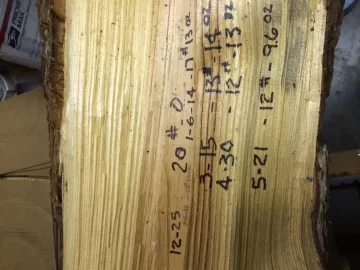 12-25 20# -0
1-6-14 -17# 13 oz
3-15 -13# -14 oz
4-30 -12# -13 oz
5-21 -12# -9.6 oz